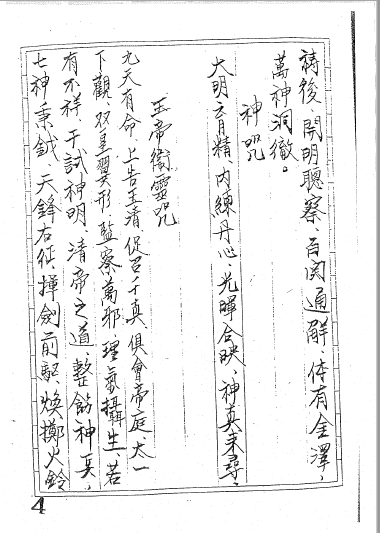 禱後、開明聰察、百関通解、体有金澤、
萬神洞徹。
神咒
大明育精、內練丹心、光暉合映、神真來尋、
玉帝衛靈咒
九天有命上告玉清促召千真俱會帝庭太一
下觀、双皇翼形、監察萬邪、理氣攝生、若
有不祥干試神明、清帝之道、整飭神兵，
七神秉鉞、天鋒右征、揮劍前駈、煥擲火鈴
4